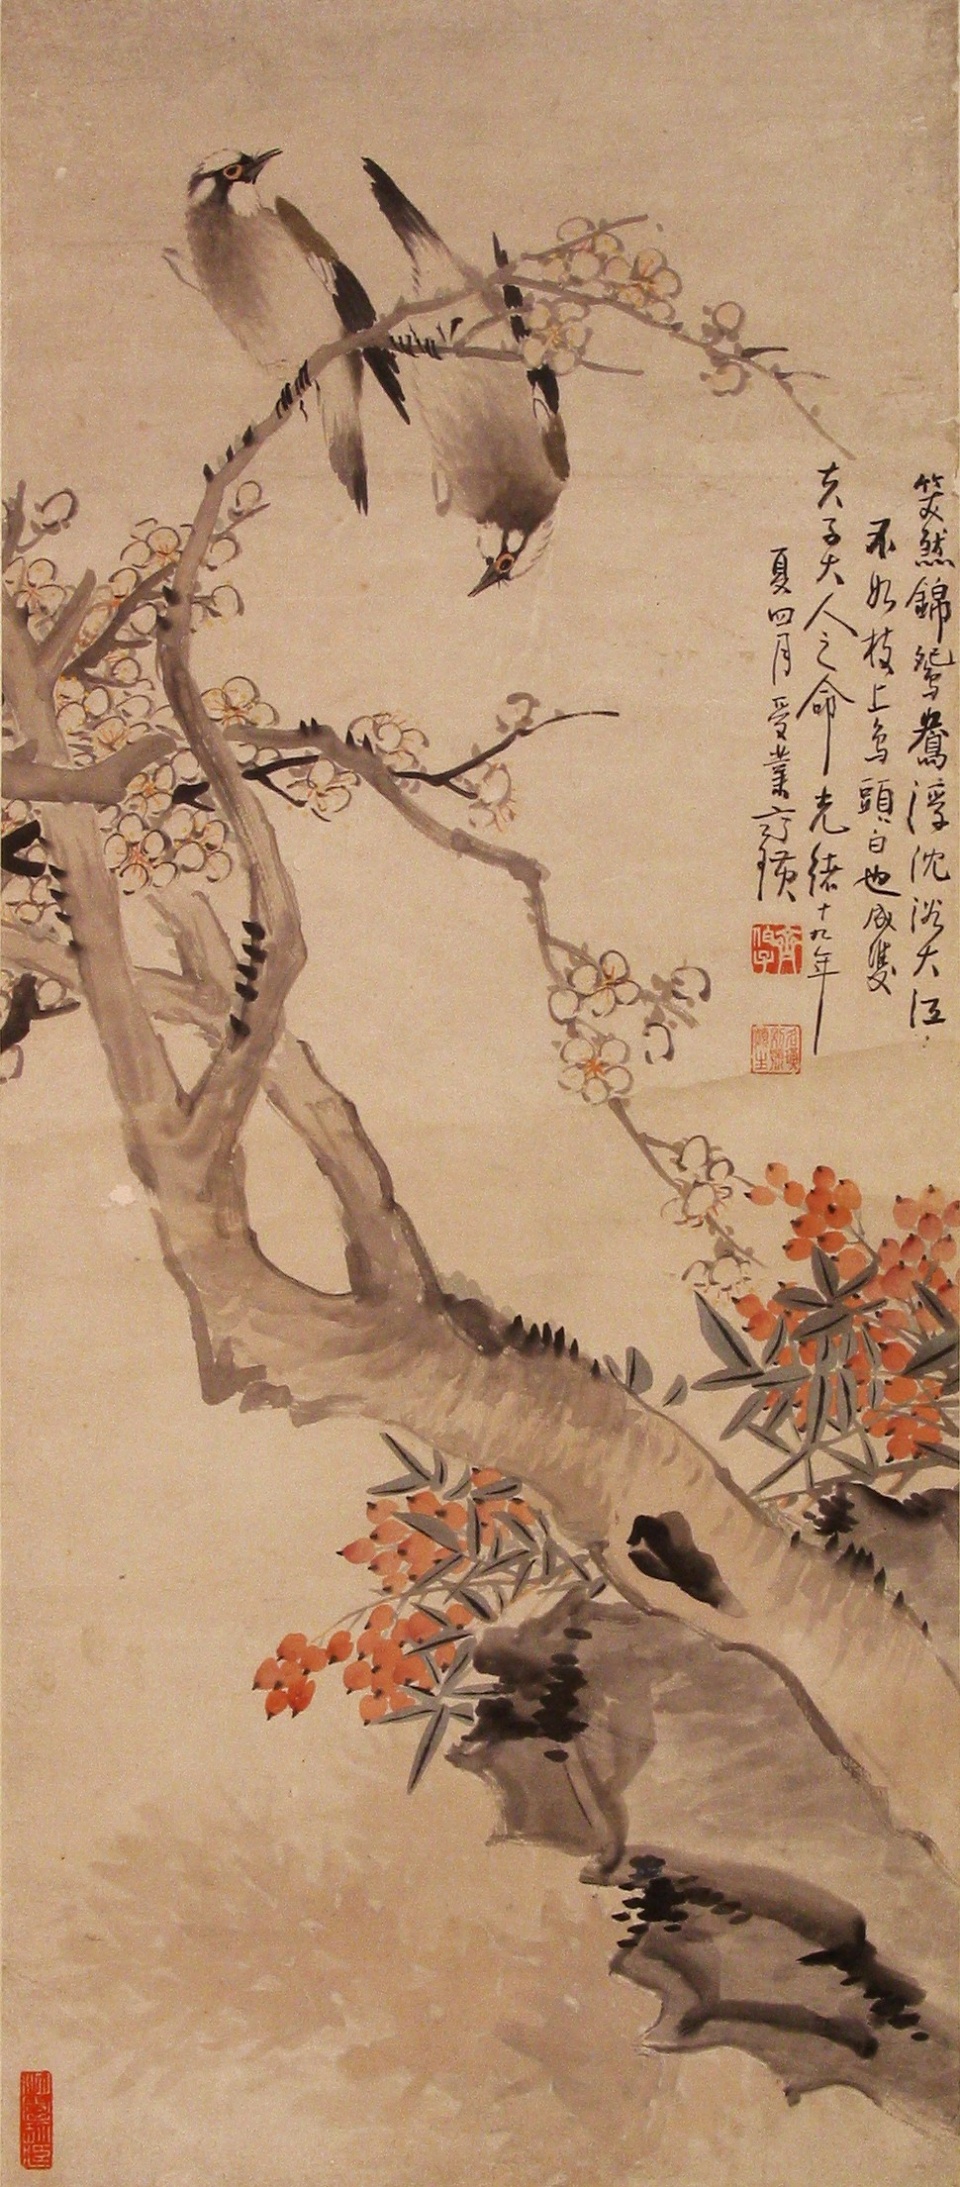 笑然錦鴛鴦浮沈浴大江
不如枝上鳥頭白也成雙
夫子大人之命光緒十九年
夏四月受業齊璜